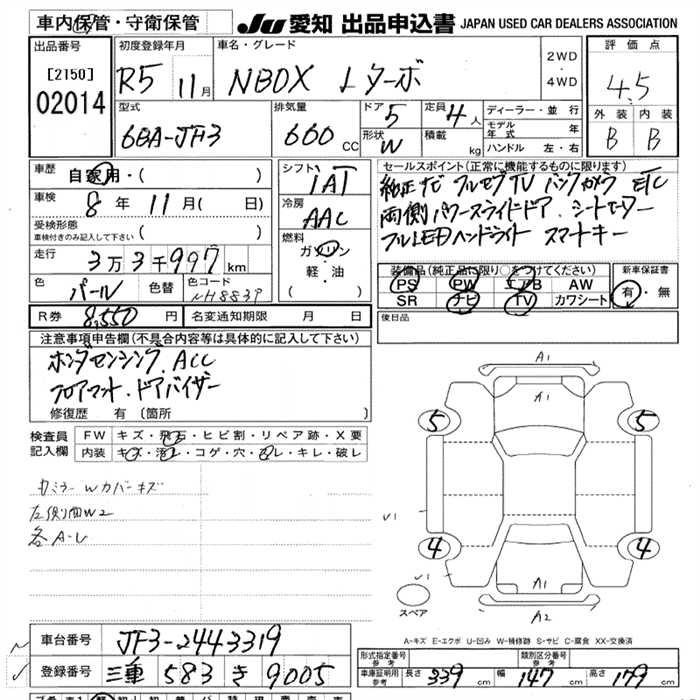 車内保管・守衛保管
JU 愛知 出品申込書 JAPAN USED CAR DEALERS ASSOCIATION
出品番号
[2150]
02014
初度登録年月
R5 11月
車名・グレード
NBOX Lターボ
2WD
・
4WD
評価点
4.5
外装 内装
B B
型式
6BA-JF3
排気量
660 CC
ドア 5
形状 W
定員 4人
積載 kg
ディーラー・並行
モデル年式 年
ハンドル 左・右
車歴
自家用・( )
車検
8年 11月( 日)
受検形態
車検付きのみ記入して下さい ( )
走行
3万3千997km
色
パール
色替
色コード
NH883P
シフト
IAT
冷房
AAC
燃料
ガソリン
軽・油
( )
セールスポイント(正常に機能するものに限ります)
純正ナビ フルセグTV バックカメラ ETC
両側パワースライドドア . シートヒーター
フルLEDヘッドライト スマートキー
装備品(純正品に限り○をつけてください)
PS PW エアB AW
SR ナビ TV カワシート
新車保証書
有・無
R券 8,550円
名変通知期限 月 日
後日品
注意事項申告欄(不具合内容等は具体的に記入して下さい)
ホンダセンシング. ACC
フロアマット . ドアバイザー
修復歴 有 〔箇所 〕
検査員記入欄
FW キズ・飛石・ヒビ割・リペア跡・X要
内装 キズ・汚レ・コゲ・穴・スレ・キレ・破レ
カミラーWカバーキズ
左側面W2
各A-U
A1
A1
5 5
V1
4 4
V1
A1
A2
スペア
A-キズ E-エクボ U-凹み W-補修跡 S-サビ C-腐食 XX-交換済
車台番号 JF3-2443319
登録番号 三重 583 き 9005
形式指定番号 参考
類別区分番号 参考
車庫証明用参考 長さ 339 cm 幅 147 cm 高さ 179 cm